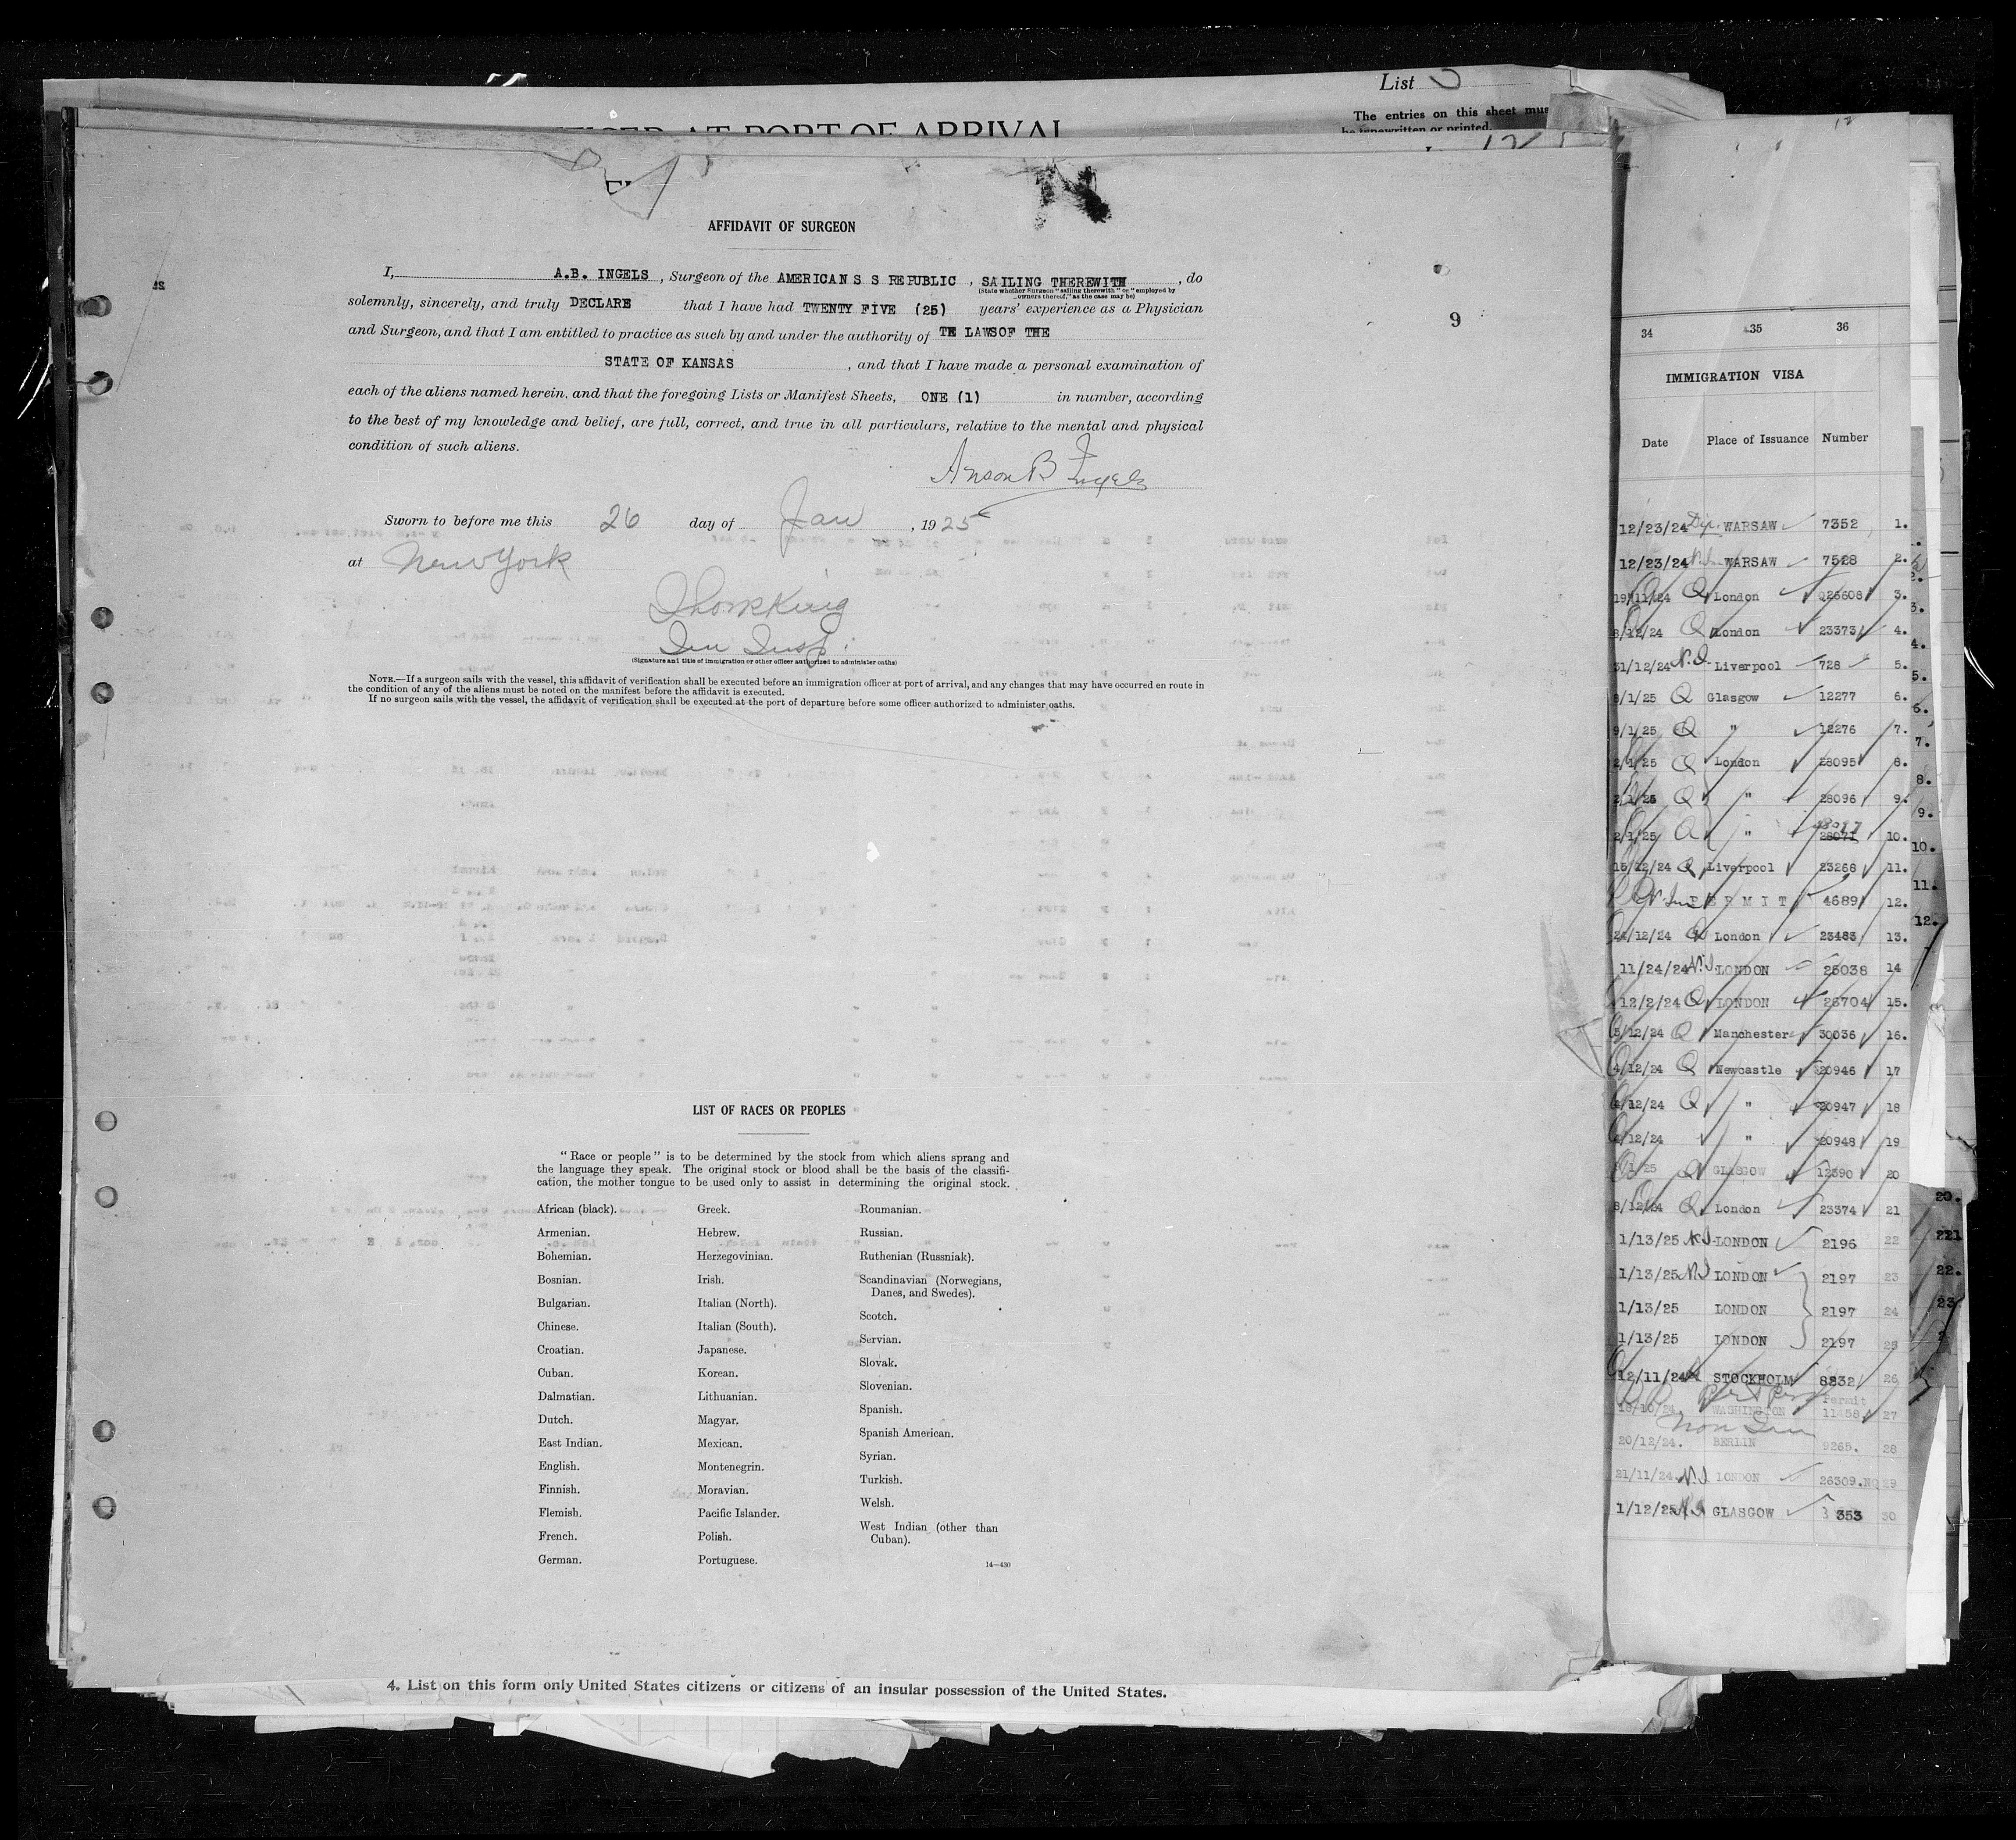 List
The entries on this sheet mus
be typewritten or printed.
AT PORT OF ARRIVAL
AFFIDAVIT OF SURGEON
I, A.B. INGELS , Surgeon of the AMERICAN S S REPUBLIC , SAILING THEREWITH , do
(State whether Surgeon "sailing therewith" or "employed by
owners thereof," as the case may be)
solemnly, sincerely, and truly DECLARE that I have had TWENTY FIVE (25) years' experience as a Physician
and Surgeon, and that I am entitled to practice as such by and under the authority of TE LAWSOF THE
STATE OF KANSAS , and that I have made a personal examination of
each of the aliens named herein, and that the foregoing Lists or Manifest Sheets, ONE (1) in number, according
to the best of my knowledge and belief, are full, correct, and true in all particulars, relative to the mental and physical
condition of such aliens.
Anson B Ingels
Sworn to before me this 26 day of Jan , 1925
at New York
Imm Insp.
(Signature and title of immigration or other officer authorized to administer oaths)
NOTE.—If a surgeon sails with the vessel, this affidavit of verification shall be executed before an immigration officer at port of arrival, and any changes that may have occurred en route in
the condition of any of the aliens must be noted on the manifest before the affidavit is executed.
If no surgeon sails with the vessel, the affidavit of verification shall be executed at the port of departure before some officer authorized to administer oaths.
9
LIST OF RACES OR PEOPLES
"Race or people" is to be determined by the stock from which aliens sprang and
the language they speak. The original stock or blood shall be the basis of the classifi-
cation, the mother tongue to be used only to assist in determining the original stock.
African (black).
Armenian.
Bohemian.
Bosnian.
Bulgarian.
Chinese.
Croatian.
Cuban.
Dalmatian.
Dutch.
East Indian.
English.
Finnish.
Flemish.
French.
German.
Greek.
Hebrew.
Herzegovinian.
Irish.
Italian (North).
Italian (South).
Japanese.
Korean.
Lithuanian.
Magyar.
Mexican.
Montenegrin.
Moravian.
Pacific Islander.
Polish.
Portuguese.
Roumanian.
Russian.
Ruthenian (Russniak).
Scandinavian (Norwegians,
Danes, and Swedes).
Scotch.
Servian.
Slovak.
Slovenian.
Spanish.
Spanish American.
Syrian.
Turkish.
Welsh.
West Indian (other than
Cuban).
14—430
4. List on this form only United States citizens or citizens of an insular possession of the United States.
34 35 36
IMMIGRATION VISA
Date Place of Issuance Number
12/23/24 Dip. WARSAW 7352 1.
12/23/24 N.I. WARSAW 7528 2.
19/11/24 Q London 25608 3.
8/12/24 Q London 23373 4.
31/12/24 N.I. Liverpool 728 5.
8/1/25 Q Glasgow 12277 6.
9/1/25 Q " 12276 7.
2/1/25 Q London 28095 8.
2/1/25 Q " 28096 9.
2/1/25 Q " 28071 10.
15/12/24 Q Liverpool 23268 11.
PERMIT 4689 12.
24/12/24 Q London 23483 13.
11/24/24 N.I. LONDON 25038 14
12/2/24 Q LONDON 26704 15.
5/12/24 Q Manchester 30036 16.
4/12/24 Q Newcastle 20946 17
4/12/24 Q " 20947 18
4/12/24 " 20948 19
1/25 Q GLASGOW 12390 20
8/12/24 Q London 23374 21
1/13/25 N.I. LONDON 2196 22
1/13/25 N.I. LONDON 2197 23
1/13/25 LONDON 2197 24
1/13/25 LONDON 2197 25
12/11/24 STOCKHOLM 8832 26
18/10/24. WASHINGTON Permit 11458 27
Non Imm
20/12/24. BERLIN 9265. 28
21/11/24. N.I. LONDON 26309.NQ 29
1/12/25 N.I. GLASGOW 353 30